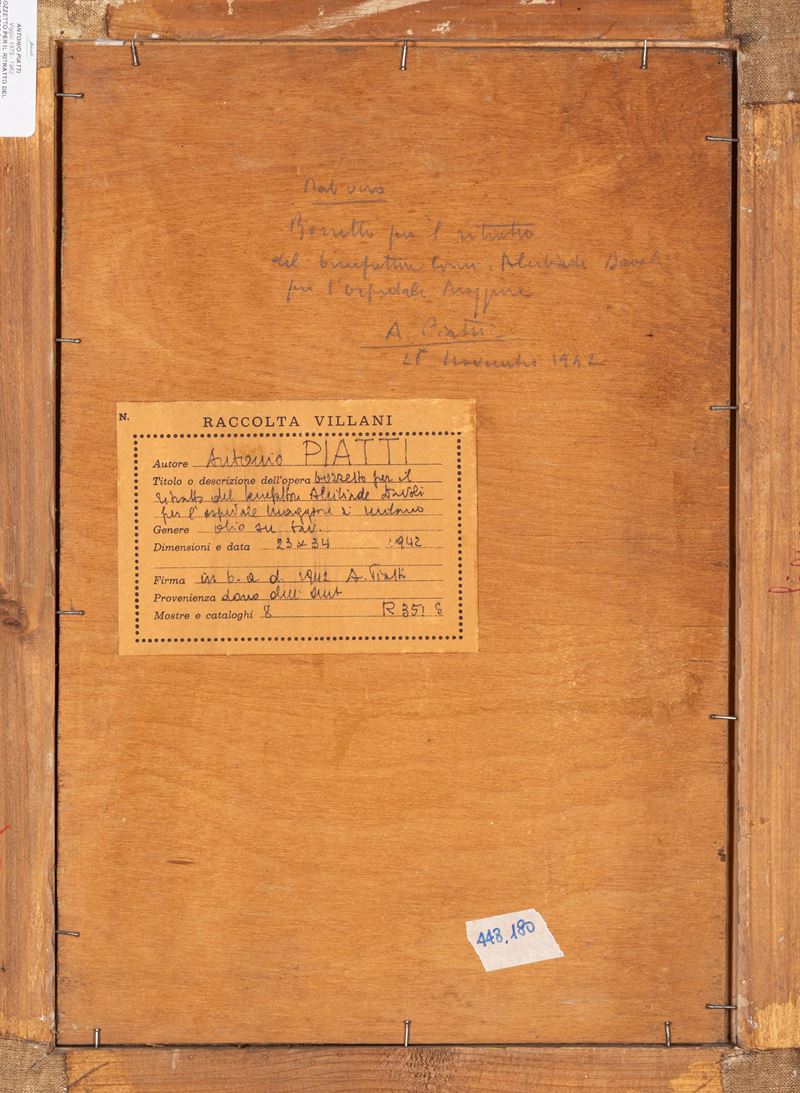 ANTONIO PIATTI
OZZETTO PER IL RITRATTO DEL
Dal vero
Bozzetto per il ritratto
del benefattore Comm. Alcibiade Davoli
per l'Ospedale Maggiore
A. Piatti
28 Novembre 1942
N.
RACCOLTA VILLANI
Autore Antonio PIATTI
Titolo o descrizione dell'opera bozzetto per il
ritratto del benefattore Alcibiade Davoli
per l'ospedale maggiore di milano
Genere olio su tav.
Dimensioni e data 23 x 34 1942
Firma in b. a d. 1942 A. Piatti
Provenienza dono dell'
Mostre e cataloghi 8 R 351 S
448,180